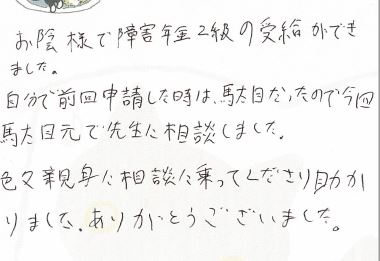 お陰様で障害年金2級の受給ができ
ました。
自分で前回申請した時は、駄目だったので今回
駄目元で先生に相談しました。
色々親身に相談に乗ってくださり助か
りました。ありがとうございました。